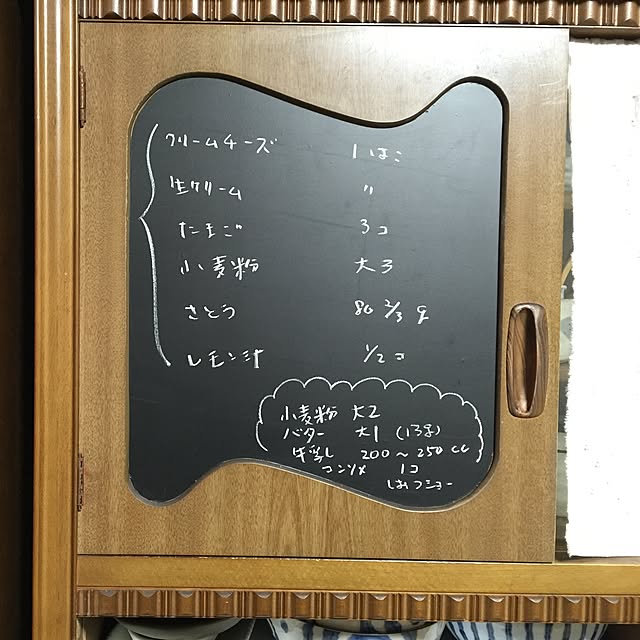 クリームチーズ 1はこ
生クリーム 〃
たまご 3コ
小麦粉 大3
さとう 80 2/3 g
レモン汁 1/2コ
小麦粉 大2
バター 大1 (13g)
牛乳 200〜250cc
コンソメ 1コ
しおコショー